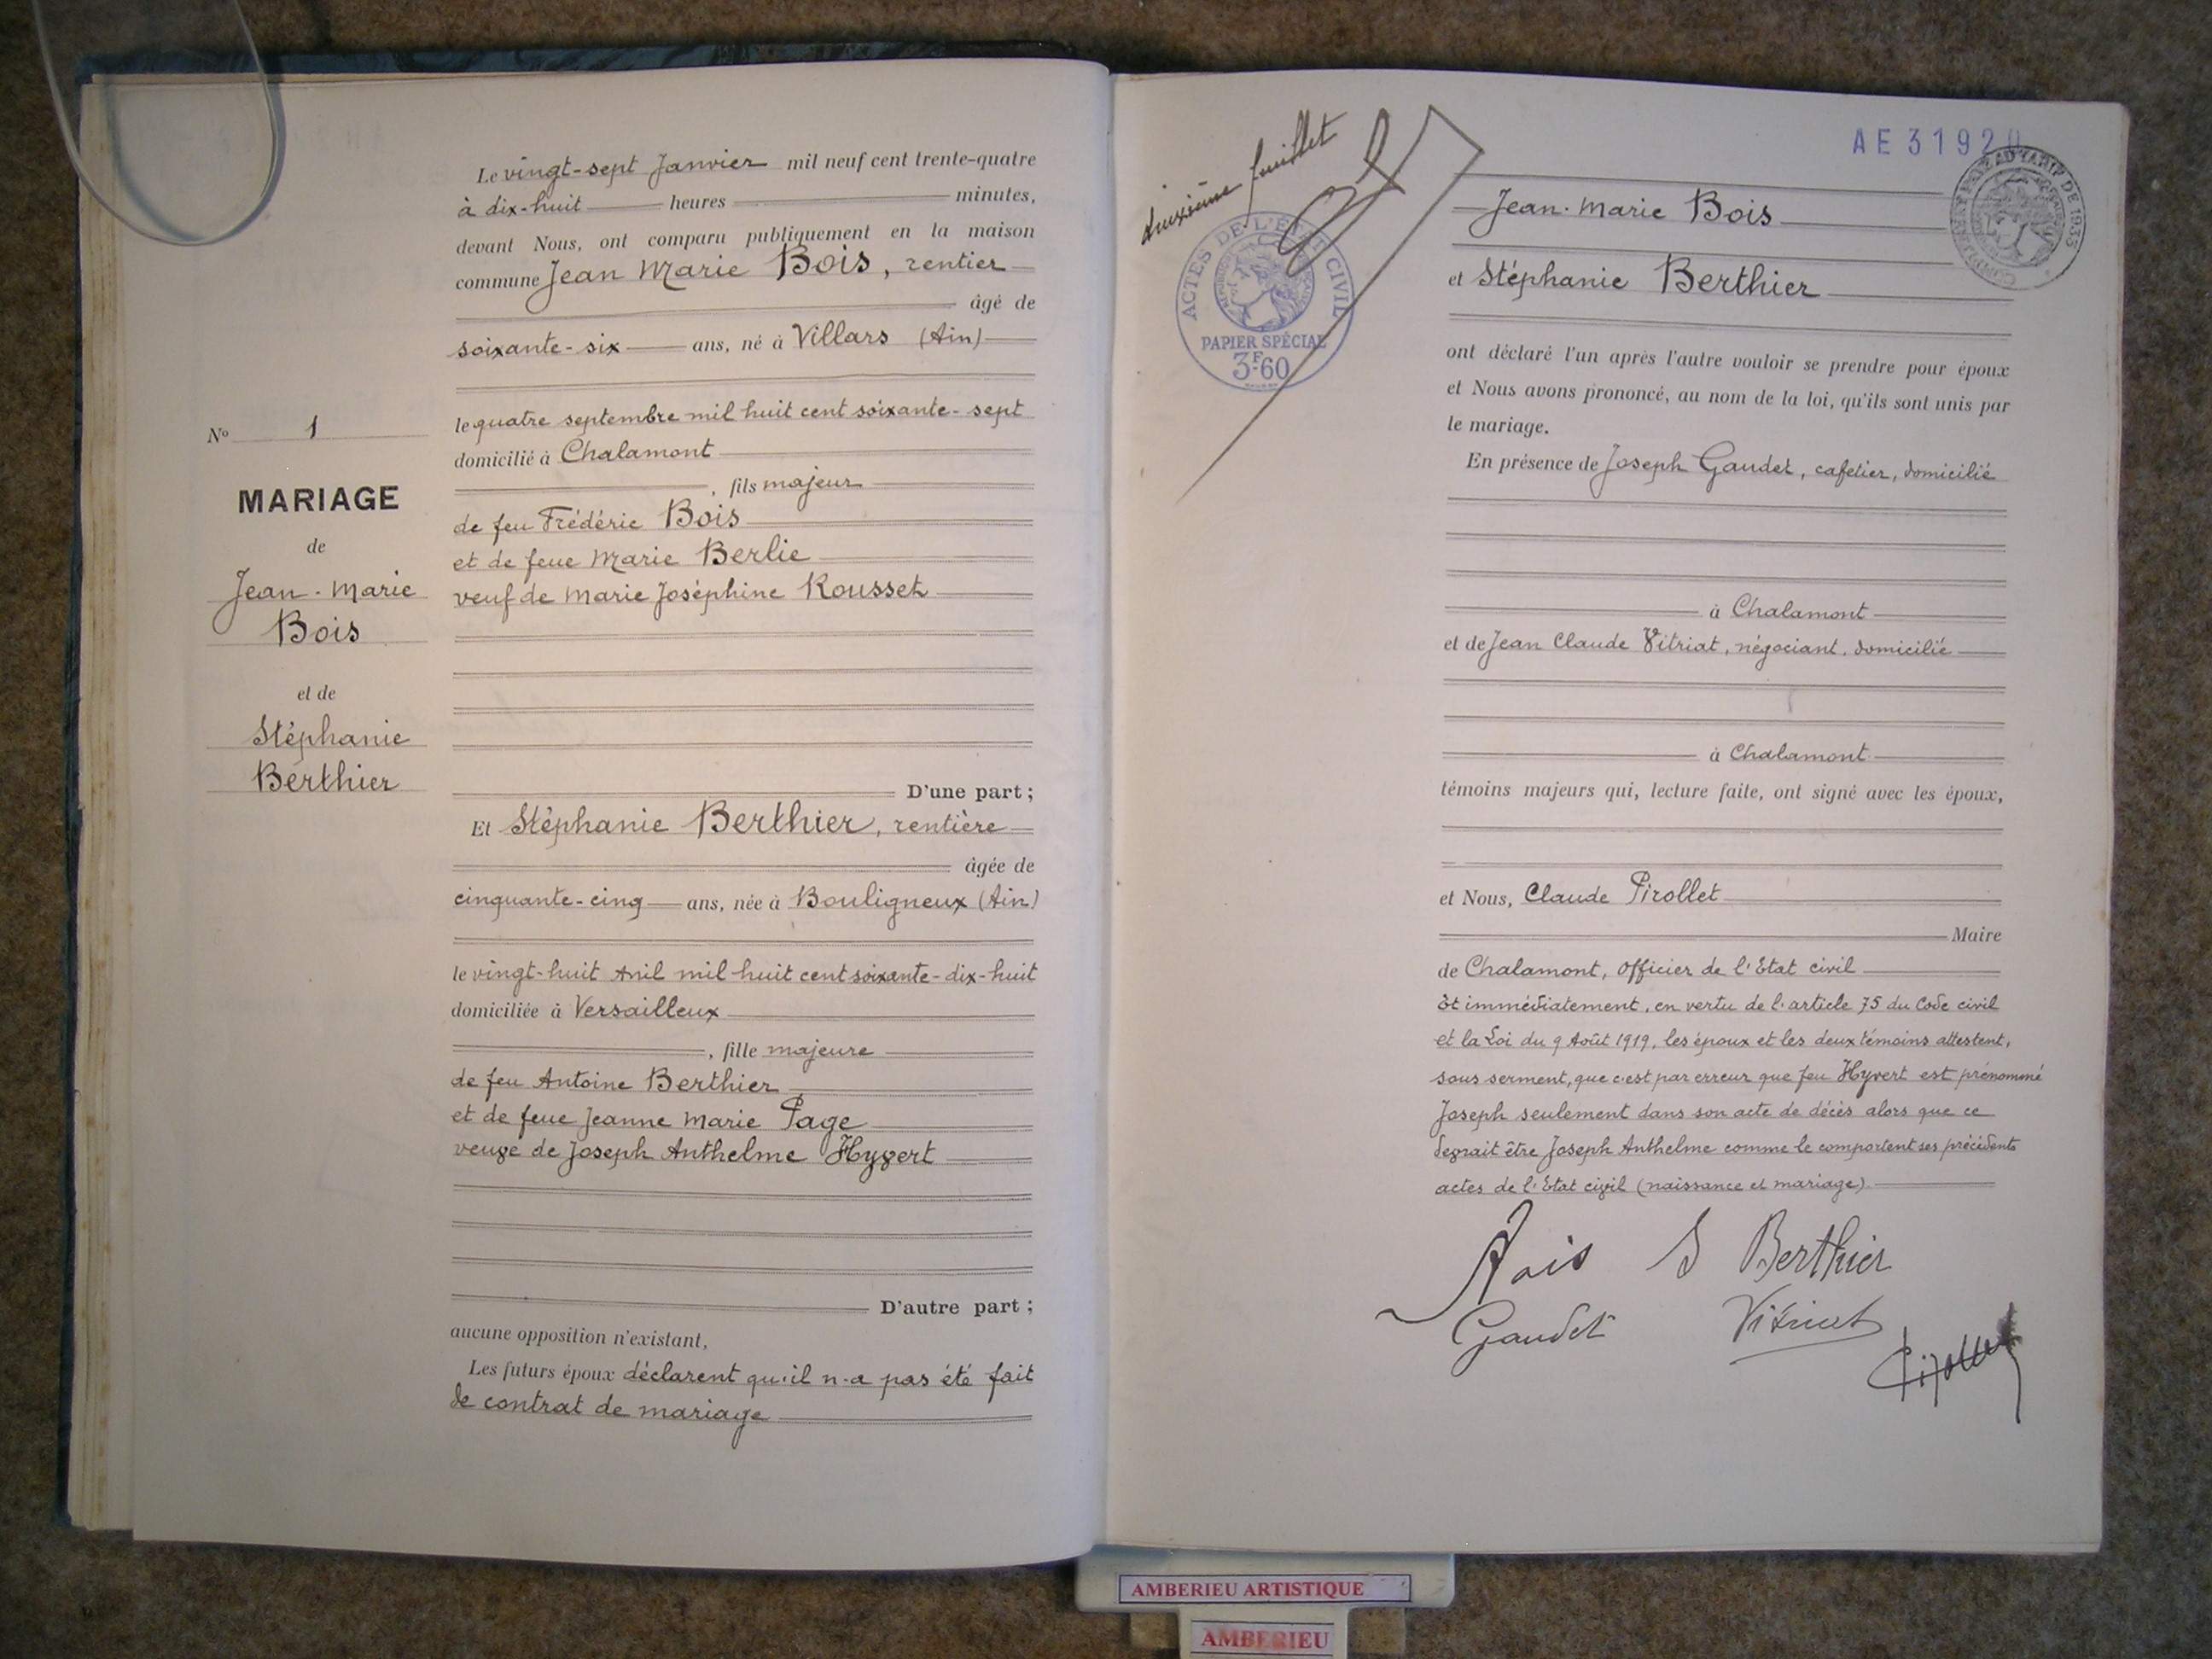 Le vingt-sept Janvier mil neuf cent trente-quatre
à dix-huit heures minutes,
devant Nous, ont comparu publiquement en la maison
commune Jean Marie Bois, rentier
âgé de
soixante-six ans, né à Villars (Ain)
le quatre septembre mil huit cent soixante-sept
domicilié à Chalamont
, fils majeur
de feu Frédéric Bois
et de feue Marie Berlie
veuf de Marie Joséphine Rousset
D'une part ;
Et Stéphanie Berthier, rentière
âgée de
cinquante-cinq ans, née à Bouligneux (Ain)
le vingt-huit Avril mil huit cent soixante-dix-huit
domiciliée à Versailleux
, fille majeure
de feu Antoine Berthier
et de feue Jeanne Marie Page
veuve de Joseph Anthelme Hyvert
D'autre part ;
aucune opposition n'existant,
Les futurs époux déclarent qu'il n'a pas été fait
de contrat de mariage
No 1
MARIAGE
de
Jean-Marie
Bois
et de
Stéphanie
Berthier
deuxième feuillet
ACTES DE L'ÉTAT CIVIL
PAPIER SPÉCIAL
3F.60
AE 31920
AU TARIF DE 1935
Jean-Marie Bois
et Stéphanie Berthier
ont déclaré l'un après l'autre vouloir se prendre pour époux
et Nous avons prononcé, au nom de la loi, qu'ils sont unis par
le mariage.
En présence de Joseph Gaudet, cafetier, domicilié
à Chalamont
et de Jean Claude Vitriat, négociant, domicilié
à Chalamont
témoins majeurs qui, lecture faite, ont signé avec les époux,
et Nous, Claude Pirollet
Maire
de Chalamont, Officier de l'Etat civil
Et immédiatement, en vertu de l'article 75 du Code civil
et la Loi du 9 Août 1919, les époux et les deux témoins attestent,
sous serment, que c'est par erreur que feu Hyvert est prénommé
Joseph seulement dans son acte de décès alors que ce
devrait être Joseph Anthelme comme le comportent ses précédents
actes de l'Etat civil (naissance et mariage).
Bois S Berthier
Gaudet Vitriat
Pirollet
AMBERIEU ARTISTIQUE
AMBERIEU